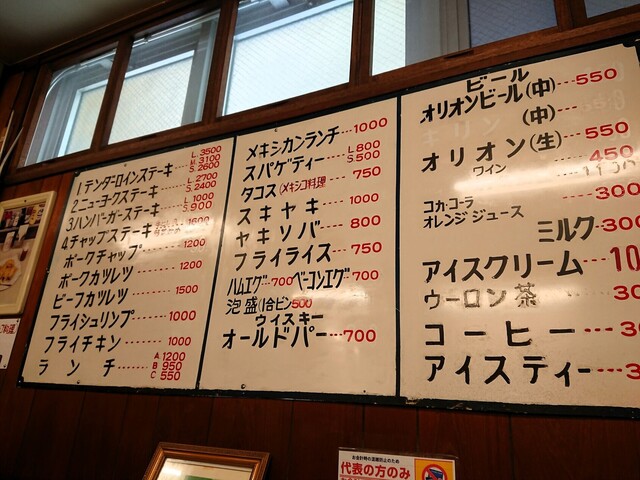 1.テンダーロインステーキ L.3500 M 3100 S 2600
2.ニューヨークステーキ L.2700 S.2400
3.ハンバーガーステーキ L.1000 S 900
4.チャップステーキ 1600
ポークチャップ 1200
ポークカツレツ 1200
ビーフカツレツ 1500
フライシュリンプ 1000
フライチキン 1000
ランチ A 1200 B 950 C 550
メキシカンランチ 1000
スパゲティー L800 S500
タコス(メキシコ料理 750
スキヤキ 1000
ヤキソバ 800
フライライス 750
ハムエグ 700 ベーコンエグ 700
泡盛(1合ビン500
ウイスキー
オールドパー 700
ビール
オリオンビール(中) 550
(中)
オリオン(生) 550
ワイン 450
コカ・コーラ 300
オレンジジュース
ミルク 300
アイスクリーム
ウーロン茶
コーヒー
アイスティー
お会計時の混雑防止のため
代表の方のみ